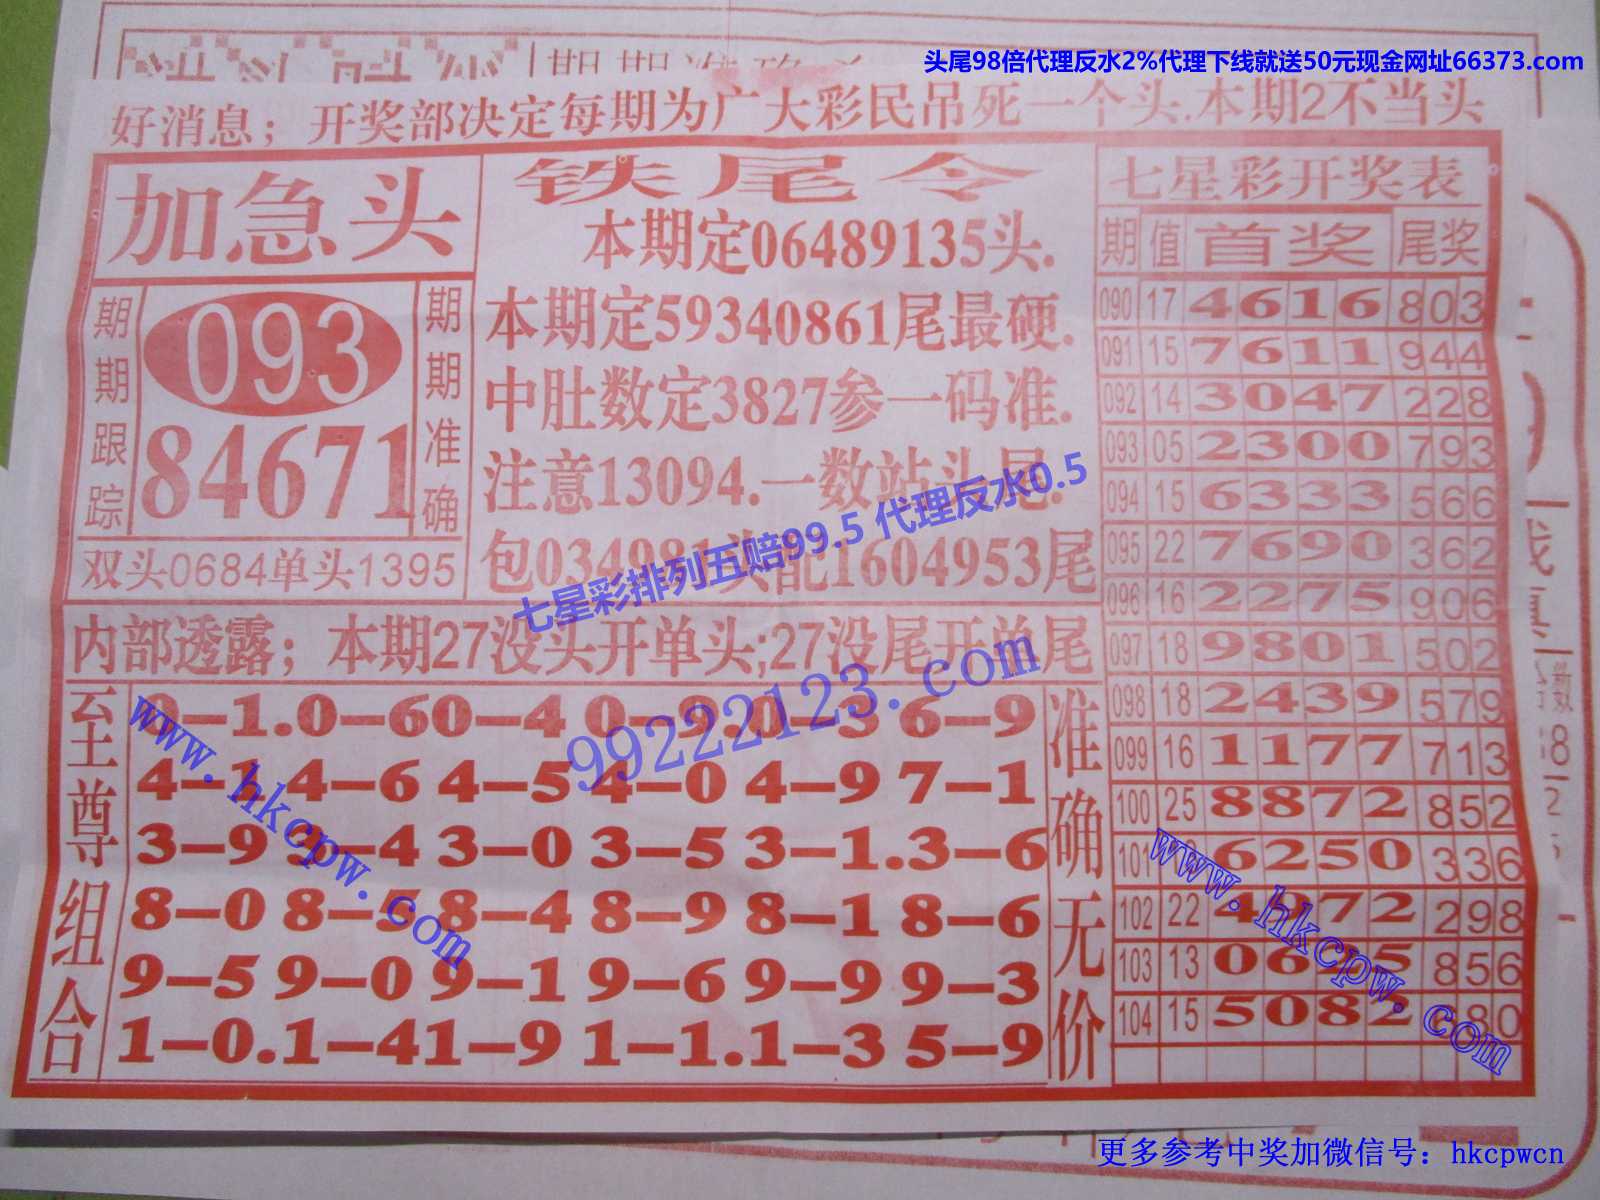 头尾98倍代理反水2%代理下线就送50元现金网址66373.com
好消息；开奖部决定每期为广大彩民吊死一个头.本期2不当头
加急头
期期跟踪
093
84671
期期准确
双头0684单头1395
铁尾令
本期定06489135头.
本期定59340861尾最硬.
中肚数定3827参一码准.
注意13094.一数站头尾.
包034981头配1604953尾
七星彩排列五赔99.5 代理反水0.5
内部透露；本期27没头开单头;27没尾开单尾
99222123.com
www.hkcpw.com
至尊组合
0–1.0–60–4 0–9 0–3 6–9
4–1.4–6 4–5 4–0 4–9 7–1
3–9 3–4 3–0 3–5 3–1.3–6
8–0 8–5 8–4 8–9 8–1 8–6
9–5 9–0 9–1 9–6 9–9 9–3
1–0.1–41–9 1–1.1–3 5–9
准确无价
七星彩开奖表
期 值 首奖 尾奖
090 17 4616 803
091 15 7611 944
092 14 3047 228
093 05 2300 793
094 15 6333 566
095 22 7690 362
096 16 2275 906
097 18 9801 502
098 18 2439 579
099 16 1177 713
100 25 8872 852
101 6250 336
102 22 4972 298
103 13 0645 856
104 15 5082 80
www.hkcpw.com
更多参考中奖加微信号：hkcpwcn